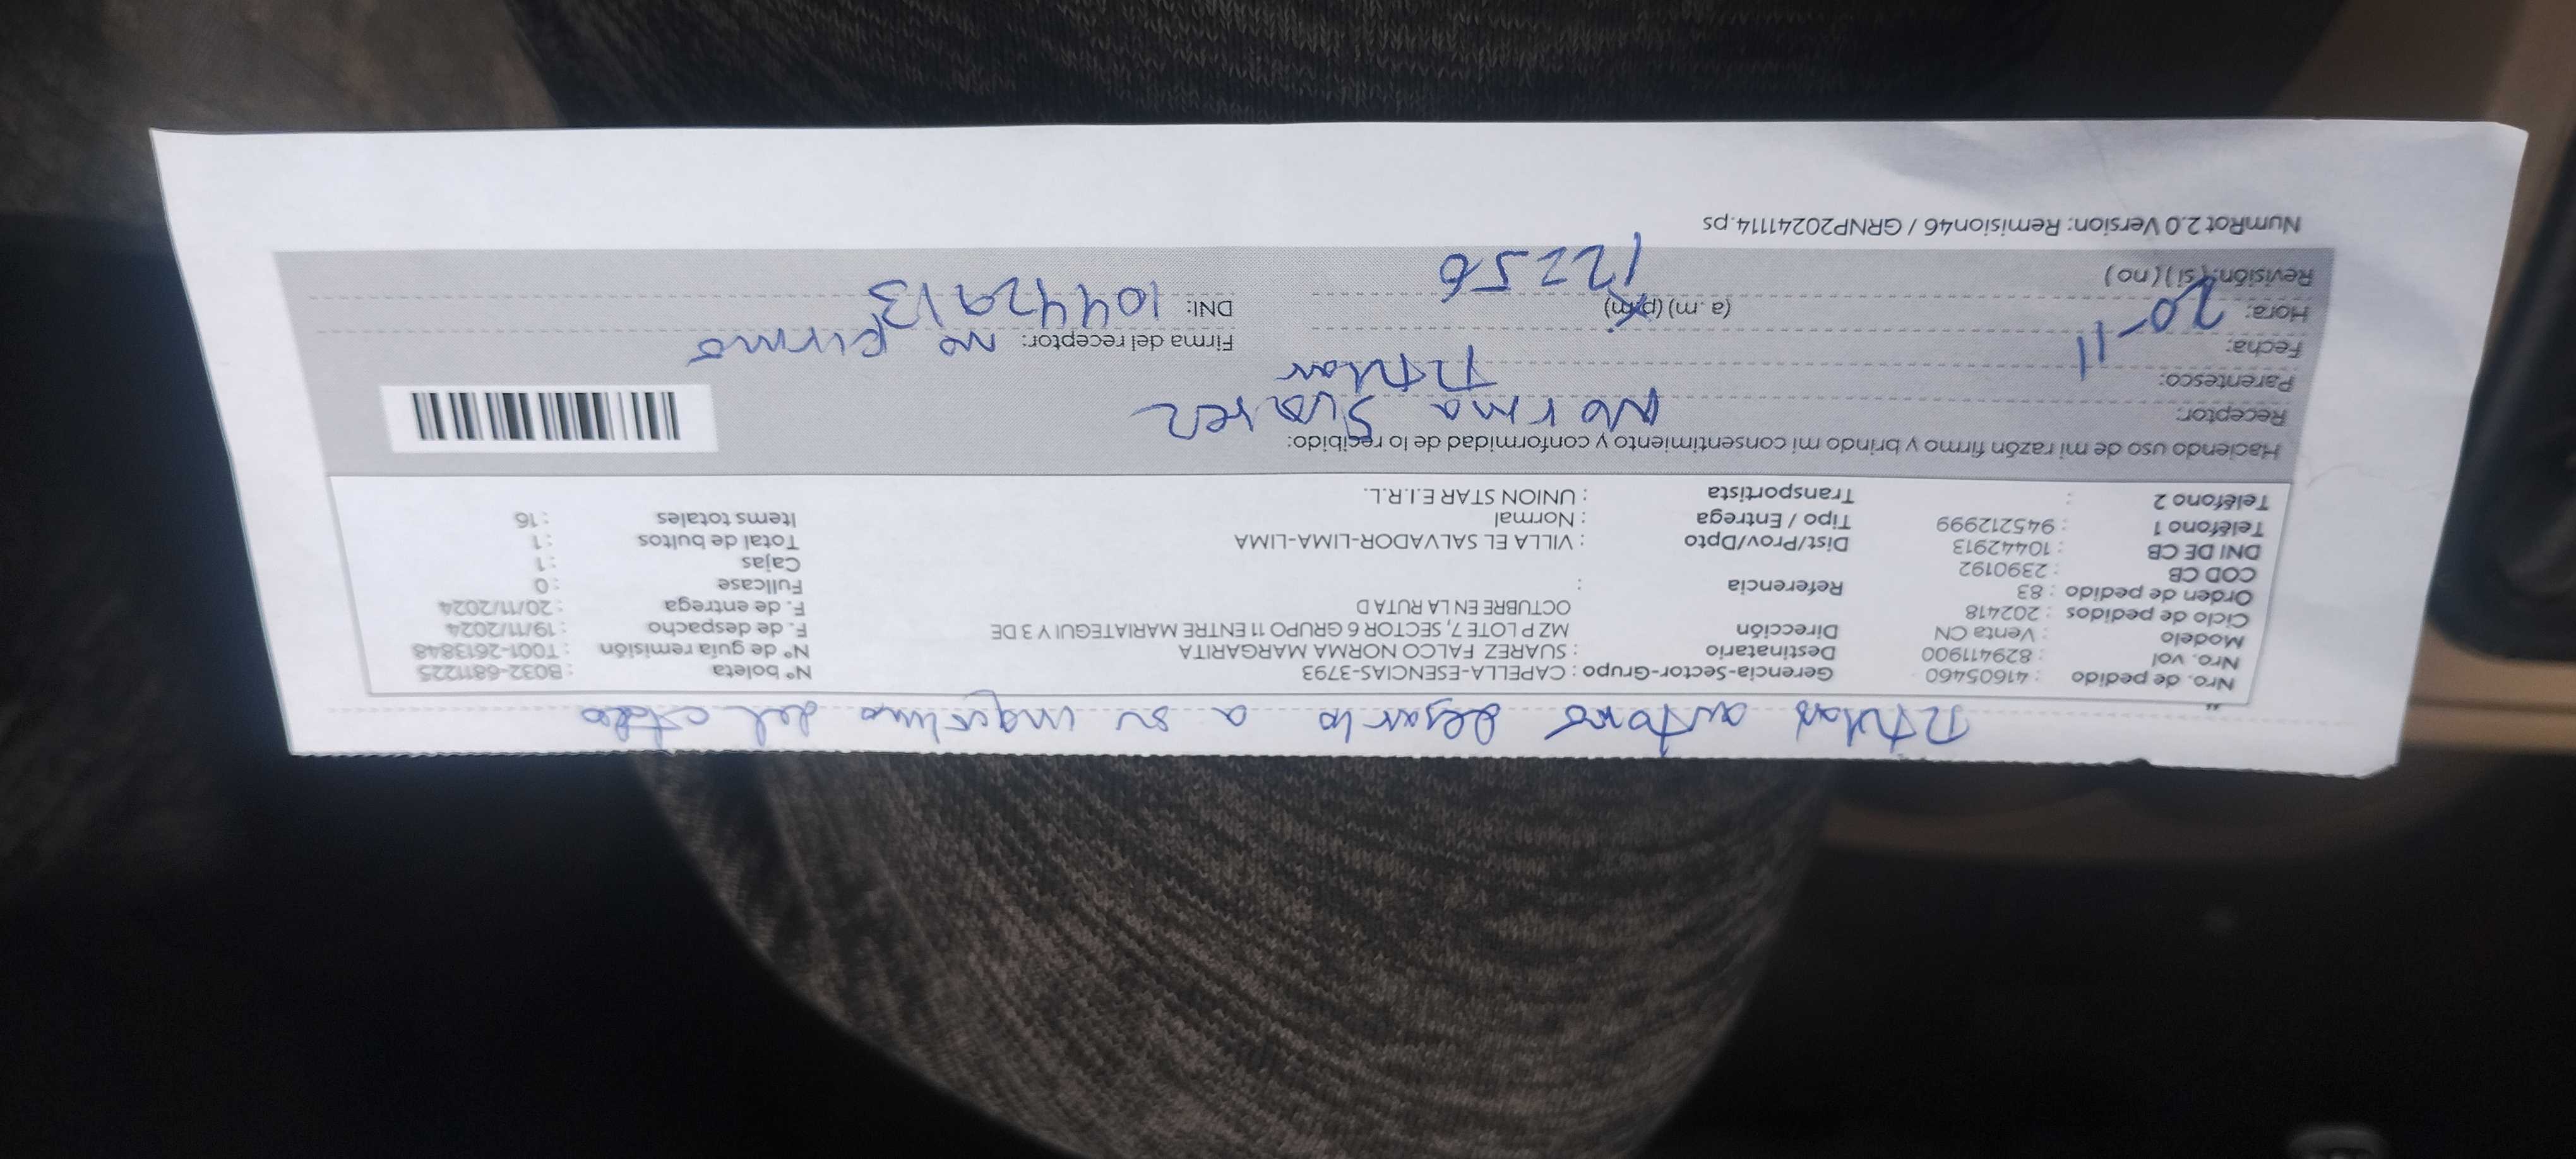 Titular autorizó dejarlo a su inquilino del
Nro. de pedido : 41605460 Gerencia-Sector-Grupo : CAPELLA-ESENCIAS-3793 N° boleta : B032-6811225
Nro. vol : 829411900 Destinatario : SUAREZ FALCO NORMA MARGARITA N° de guía remisión : T001-2613848
Modelo : Venta CN Dirección MZ P LOTE 7, SECTOR 6 GRUPO 11 ENTRE MARIATEGUI Y 3 DE F. de despacho : 19/11/2024
Ciclo de pedidos : 202418 OCTUBRE EN LA RUTA D F. de entrega : 20/11/2024
Orden de pedido : 83 Referencia : Fullcase : 0
COD CB : 2390192 Cajas : 1
DNI DE CB : 10442913 Dist/Prov/Dpto : VILLA EL SALVADOR-LIMA-LIMA Total de bultos : 1
Teléfono 1 : 945212999 Tipo / Entrega : Normal Items totales : 16
Teléfono 2 : Transportista : UNION STAR E.I.R.L.
Haciendo uso de mi razón firmo y brindo mi consentimiento y conformidad de lo recibido:
Receptor: Norma Suarez
Parentesco: Titular
Fecha: 20-11 Firma del receptor: no firmo
Hora: (a.m) (p.m) DNI: 10442913
Revisión: (si) (no) 12256
NumRot 2.0 Version: Remision46 / GRNP20241114.ps